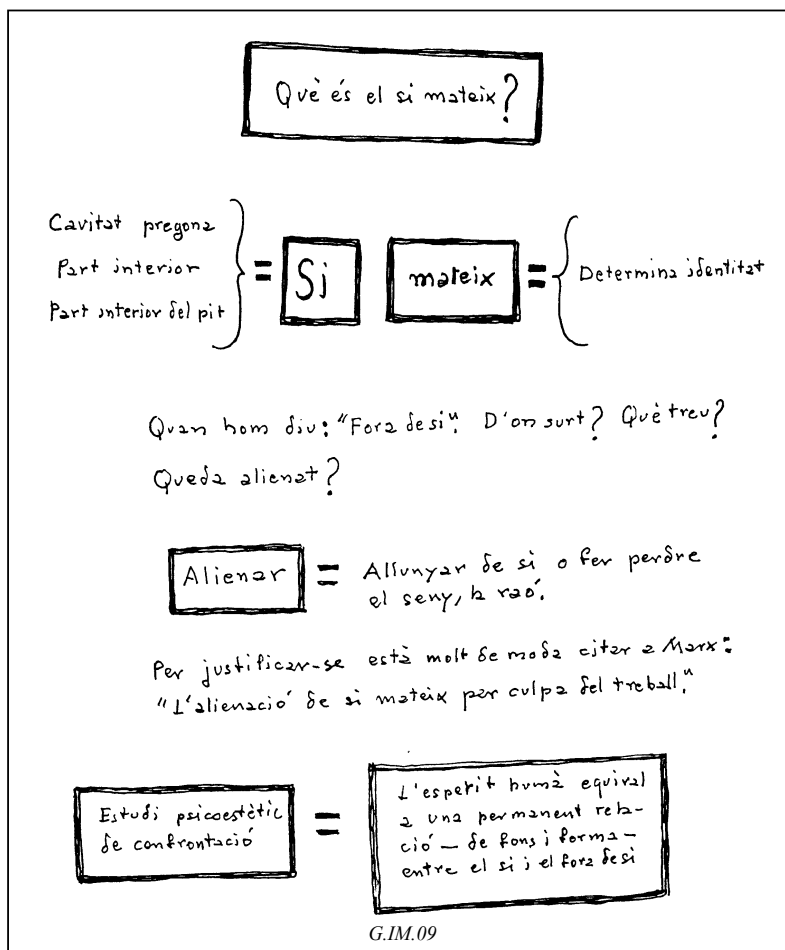 Què és el si mateix?
Cavitat pregona
Part interior
Part interior del pit
=
Si
mateix
=
Determina identitat
Quan hom diu: "Fora de si". D'on surt? Què treu?
Queda alienat?
Alienar = Allunyar de si o fer perdre
el seny, la raó.
Per justificar-se està molt de moda citar a Marx:
"L'alienació de si mateix per culpa del treball."
Estudi psicoestètic
de confrontació
=
L'esperit humà equival
a una permanent rela-
ció — de fons i forma —
entre el si i el fora de si
G.IM.09